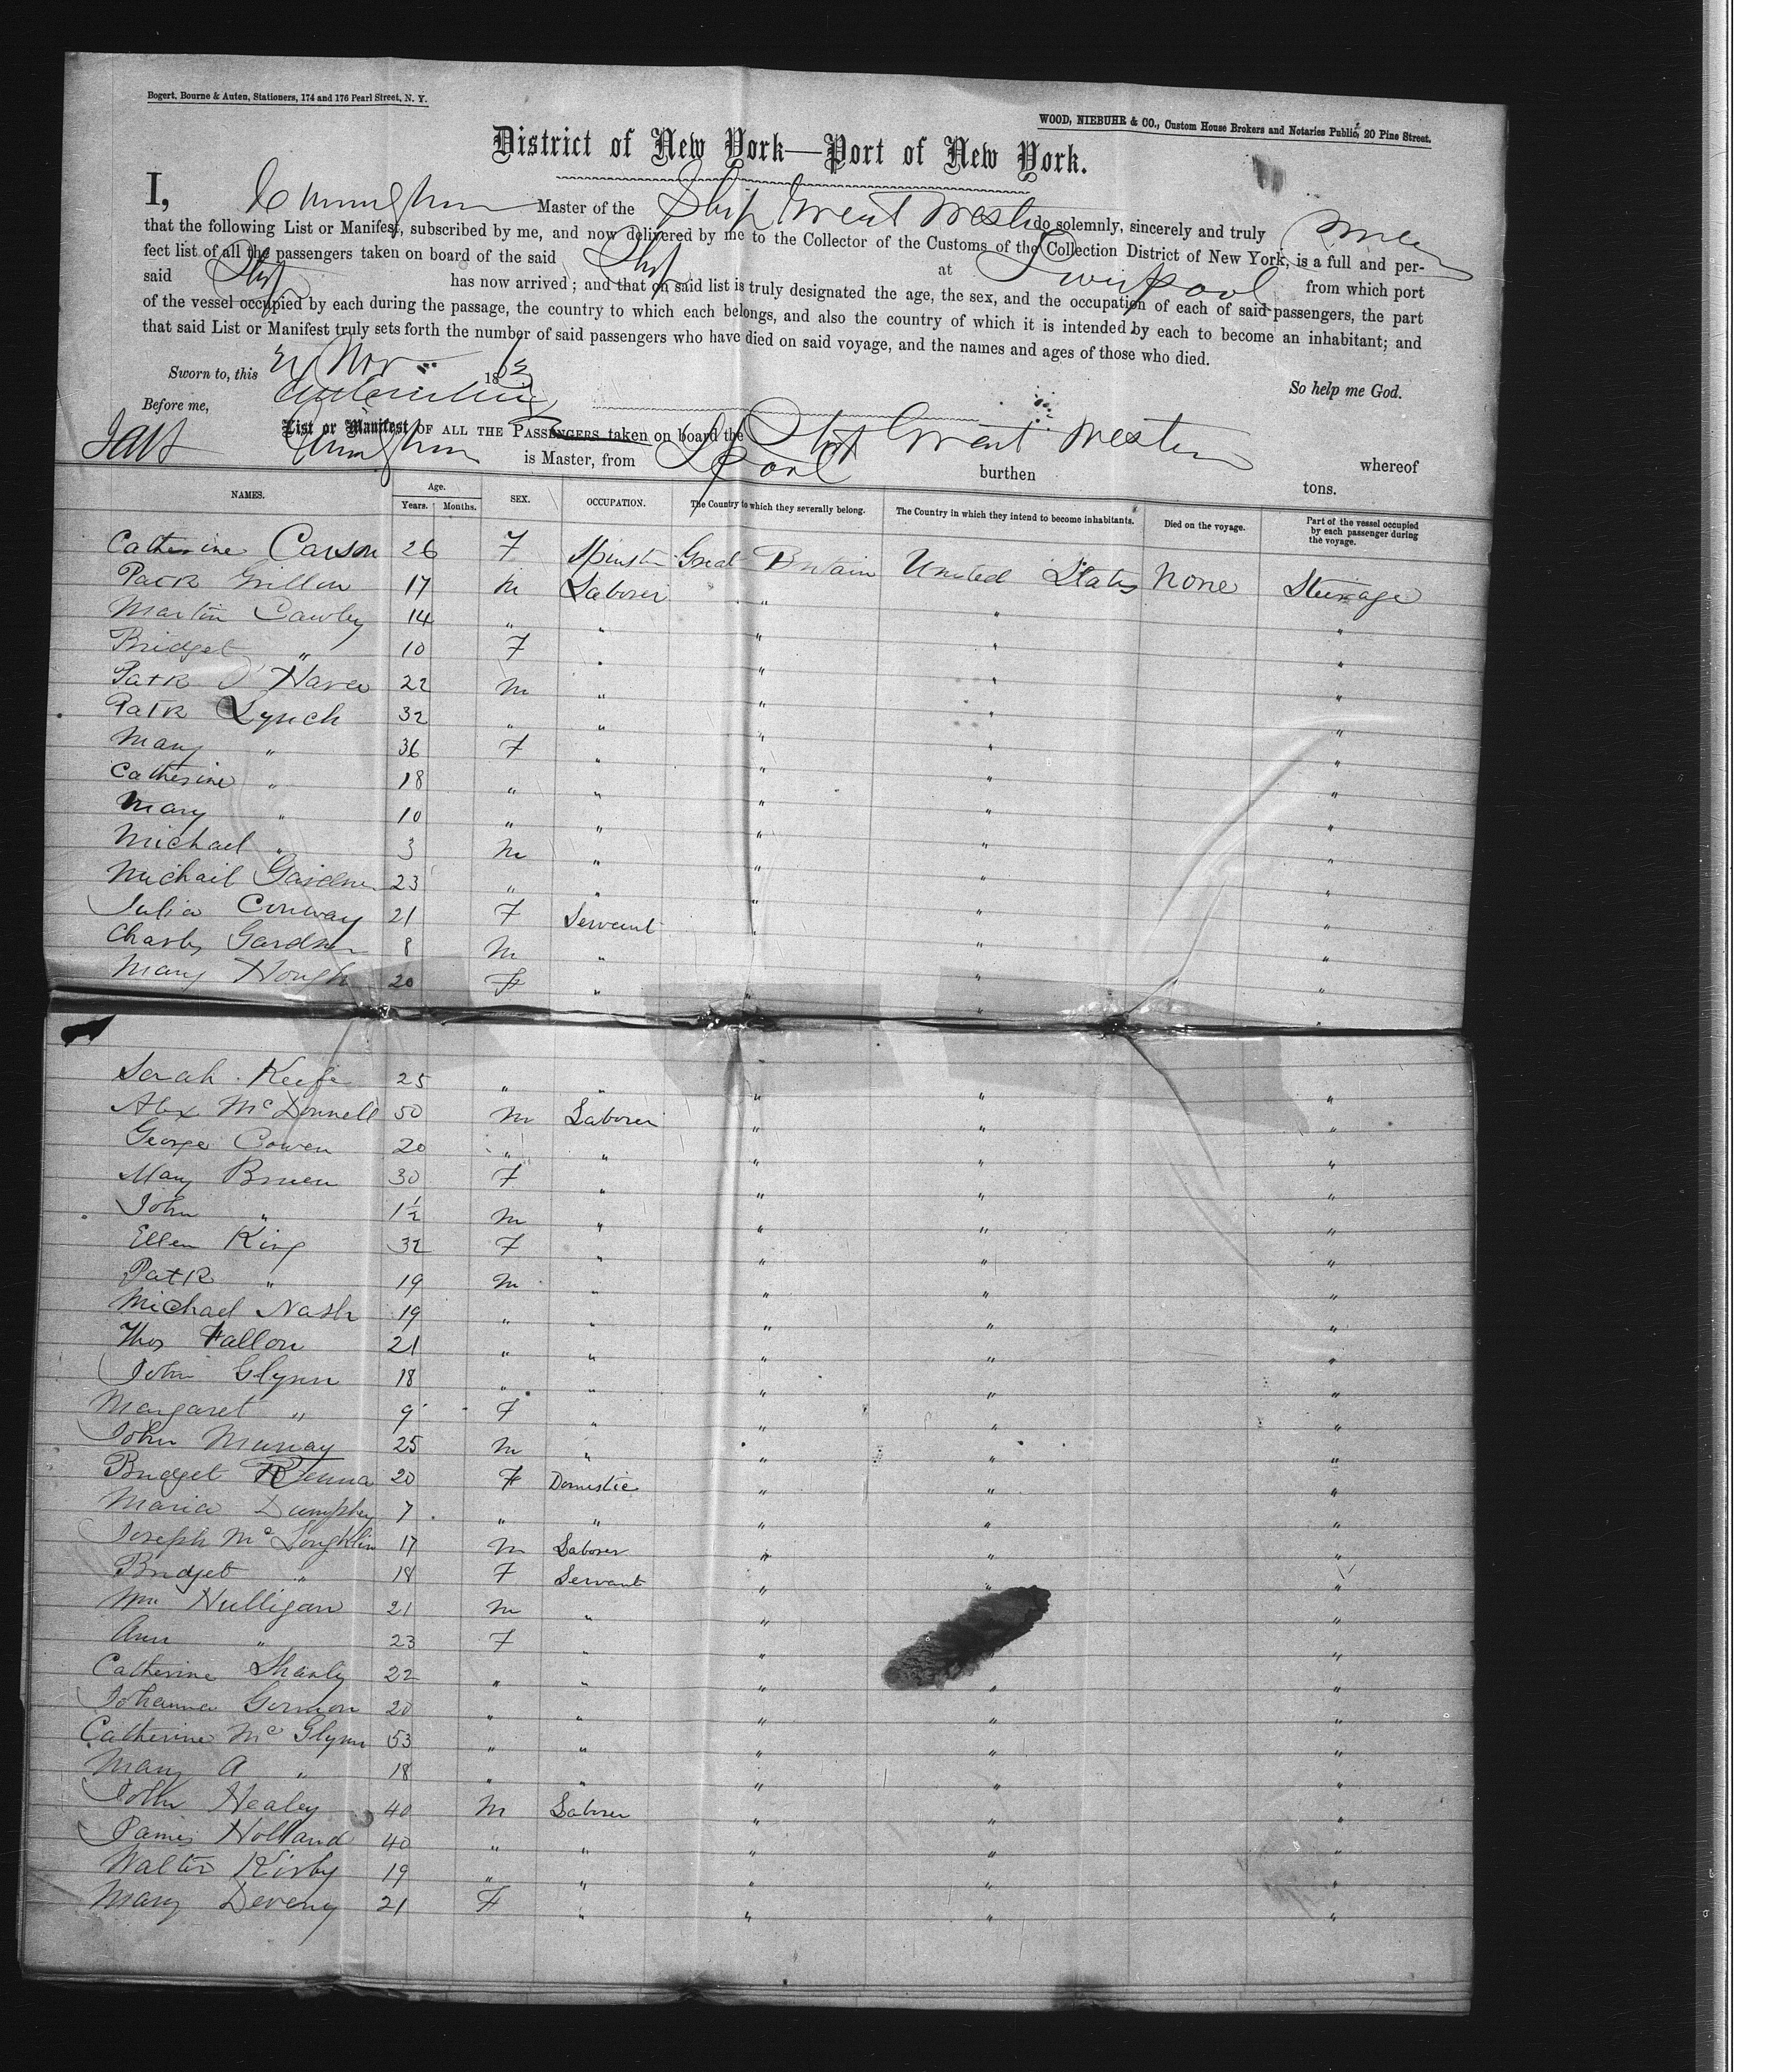 Bogert, Bourne & Auten, Stationers, 174 and 176 Pearl Street, N. Y.
WOOD, NIEBUHR & CO., Custom House Brokers and Notaries Public, 20 Pine Street.
District of New York—Port of New York.
I, Cunningham Master of the Ship Great Western do solemnly, sincerely and truly
that the following List or Manifest, subscribed by me, and now delivered by me to the Collector of the Customs of the Collection District of New York, is a full and per-
fect list of all the passengers taken on board of the said Ship at Liverpool from which port
said Ship has now arrived; and that on said list is truly designated the age, the sex, and the occupation of each of said passengers, the part
of the vessel occupied by each during the passage, the country to which each belongs, and also the country of which it is intended by each to become an inhabitant; and
that said List or Manifest truly sets forth the number of said passengers who have died on said voyage, and the names and ages of those who died.
Sworn to, this Nov 18 So help me God.
Before me,
List or Manifest OF ALL THE PASSENGERS taken on board the Ship Great Western whereof
Cunningham is Master, from L Pool burthen tons.
NAMES. Age. Years. Months. SEX. OCCUPATION. The Country to which they severally belong. The Country in which they intend to become inhabitants. Died on the voyage. Part of the vessel occupied by each passenger during the voyage.
Catherine Carson 26 F Spinster Great Britain United States None Steerage
Patk Gillen 17 M Laborer " " "
Martin Cawley 14 " " " " "
Bridget " 10 F " " " "
Patk O'Hara 22 M " " " "
Patk Lynch 32 " " " " "
Mary " 36 F " " " "
Catherine " 18 " " " " "
Mary " 10 " " " " "
Michael " 3 M " " " "
Michail Gardner 23 " " " " "
Julia Conway 21 F Servant " " "
Charles Gardner 8 M " " " "
Mary Hough 20 F " " " "
Sarah Keefe 25 " " " " "
Alex McDonnell 50 M Laborer " " "
George Cowen 20 " " " " "
Mary Bruen 30 F " " " "
John " 1½ M " " " "
Ellen King 32 F " " " "
Patk " 19 M " " " "
Michael Nash 19 " " " " "
Thos Fallon 21 " " " " "
John Glynn 18 " " " " "
Margaret " 9 F " " " "
John Murray 25 M " " " "
Bridget Kenna 20 F Domestic " " "
Maria Dumphey 7 " " " " "
Joseph McLoughlin 17 M Laborer " " "
Bridget " 18 F Servant " " "
Wm Hulligan 21 M " " " "
Ann " 23 F " " "
Catherine Shanly 22 " " " " "
Johanna Gorman 20 " " " " "
Catherine McGlynn 53 " " " " "
Mary A " 18 " " " " "
John Healey 40 M Laborer " " "
James Holland 40 " " " " "
Walter Kirby 19 " " " " "
Mary Deveny 21 F " " " "